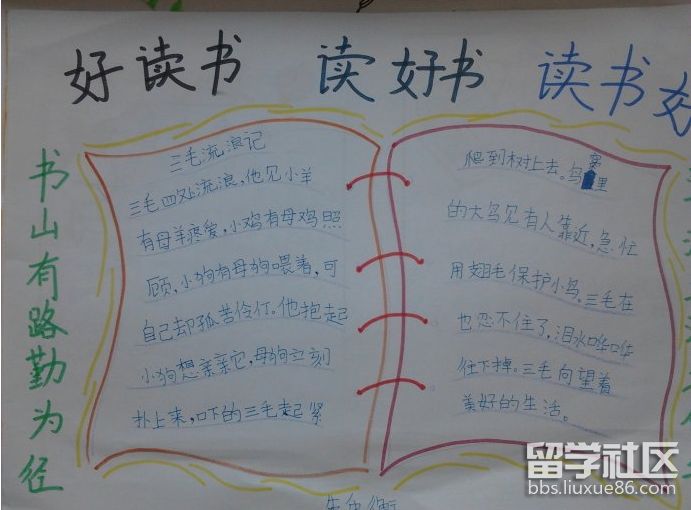 好读书 读好书 读书好
书山有路勤为径
三毛流浪记
三毛四处流浪,他见小羊
有母羊疼爱,小鸡有母鸡照
顾,小狗有母狗喂着,可
自己却孤苦伶仃。他抱起
小狗想亲亲它,母狗立刻
扑上来,吓的三毛赶紧
爬到树上去。鸟窝里
的大鸟见有人靠近,急忙
用翅毛保护小鸟。三毛在
也忍不住了,泪水哗哗
往下掉。三毛向望着
美好的生活。
留学社区
bbs.liuxue86.com